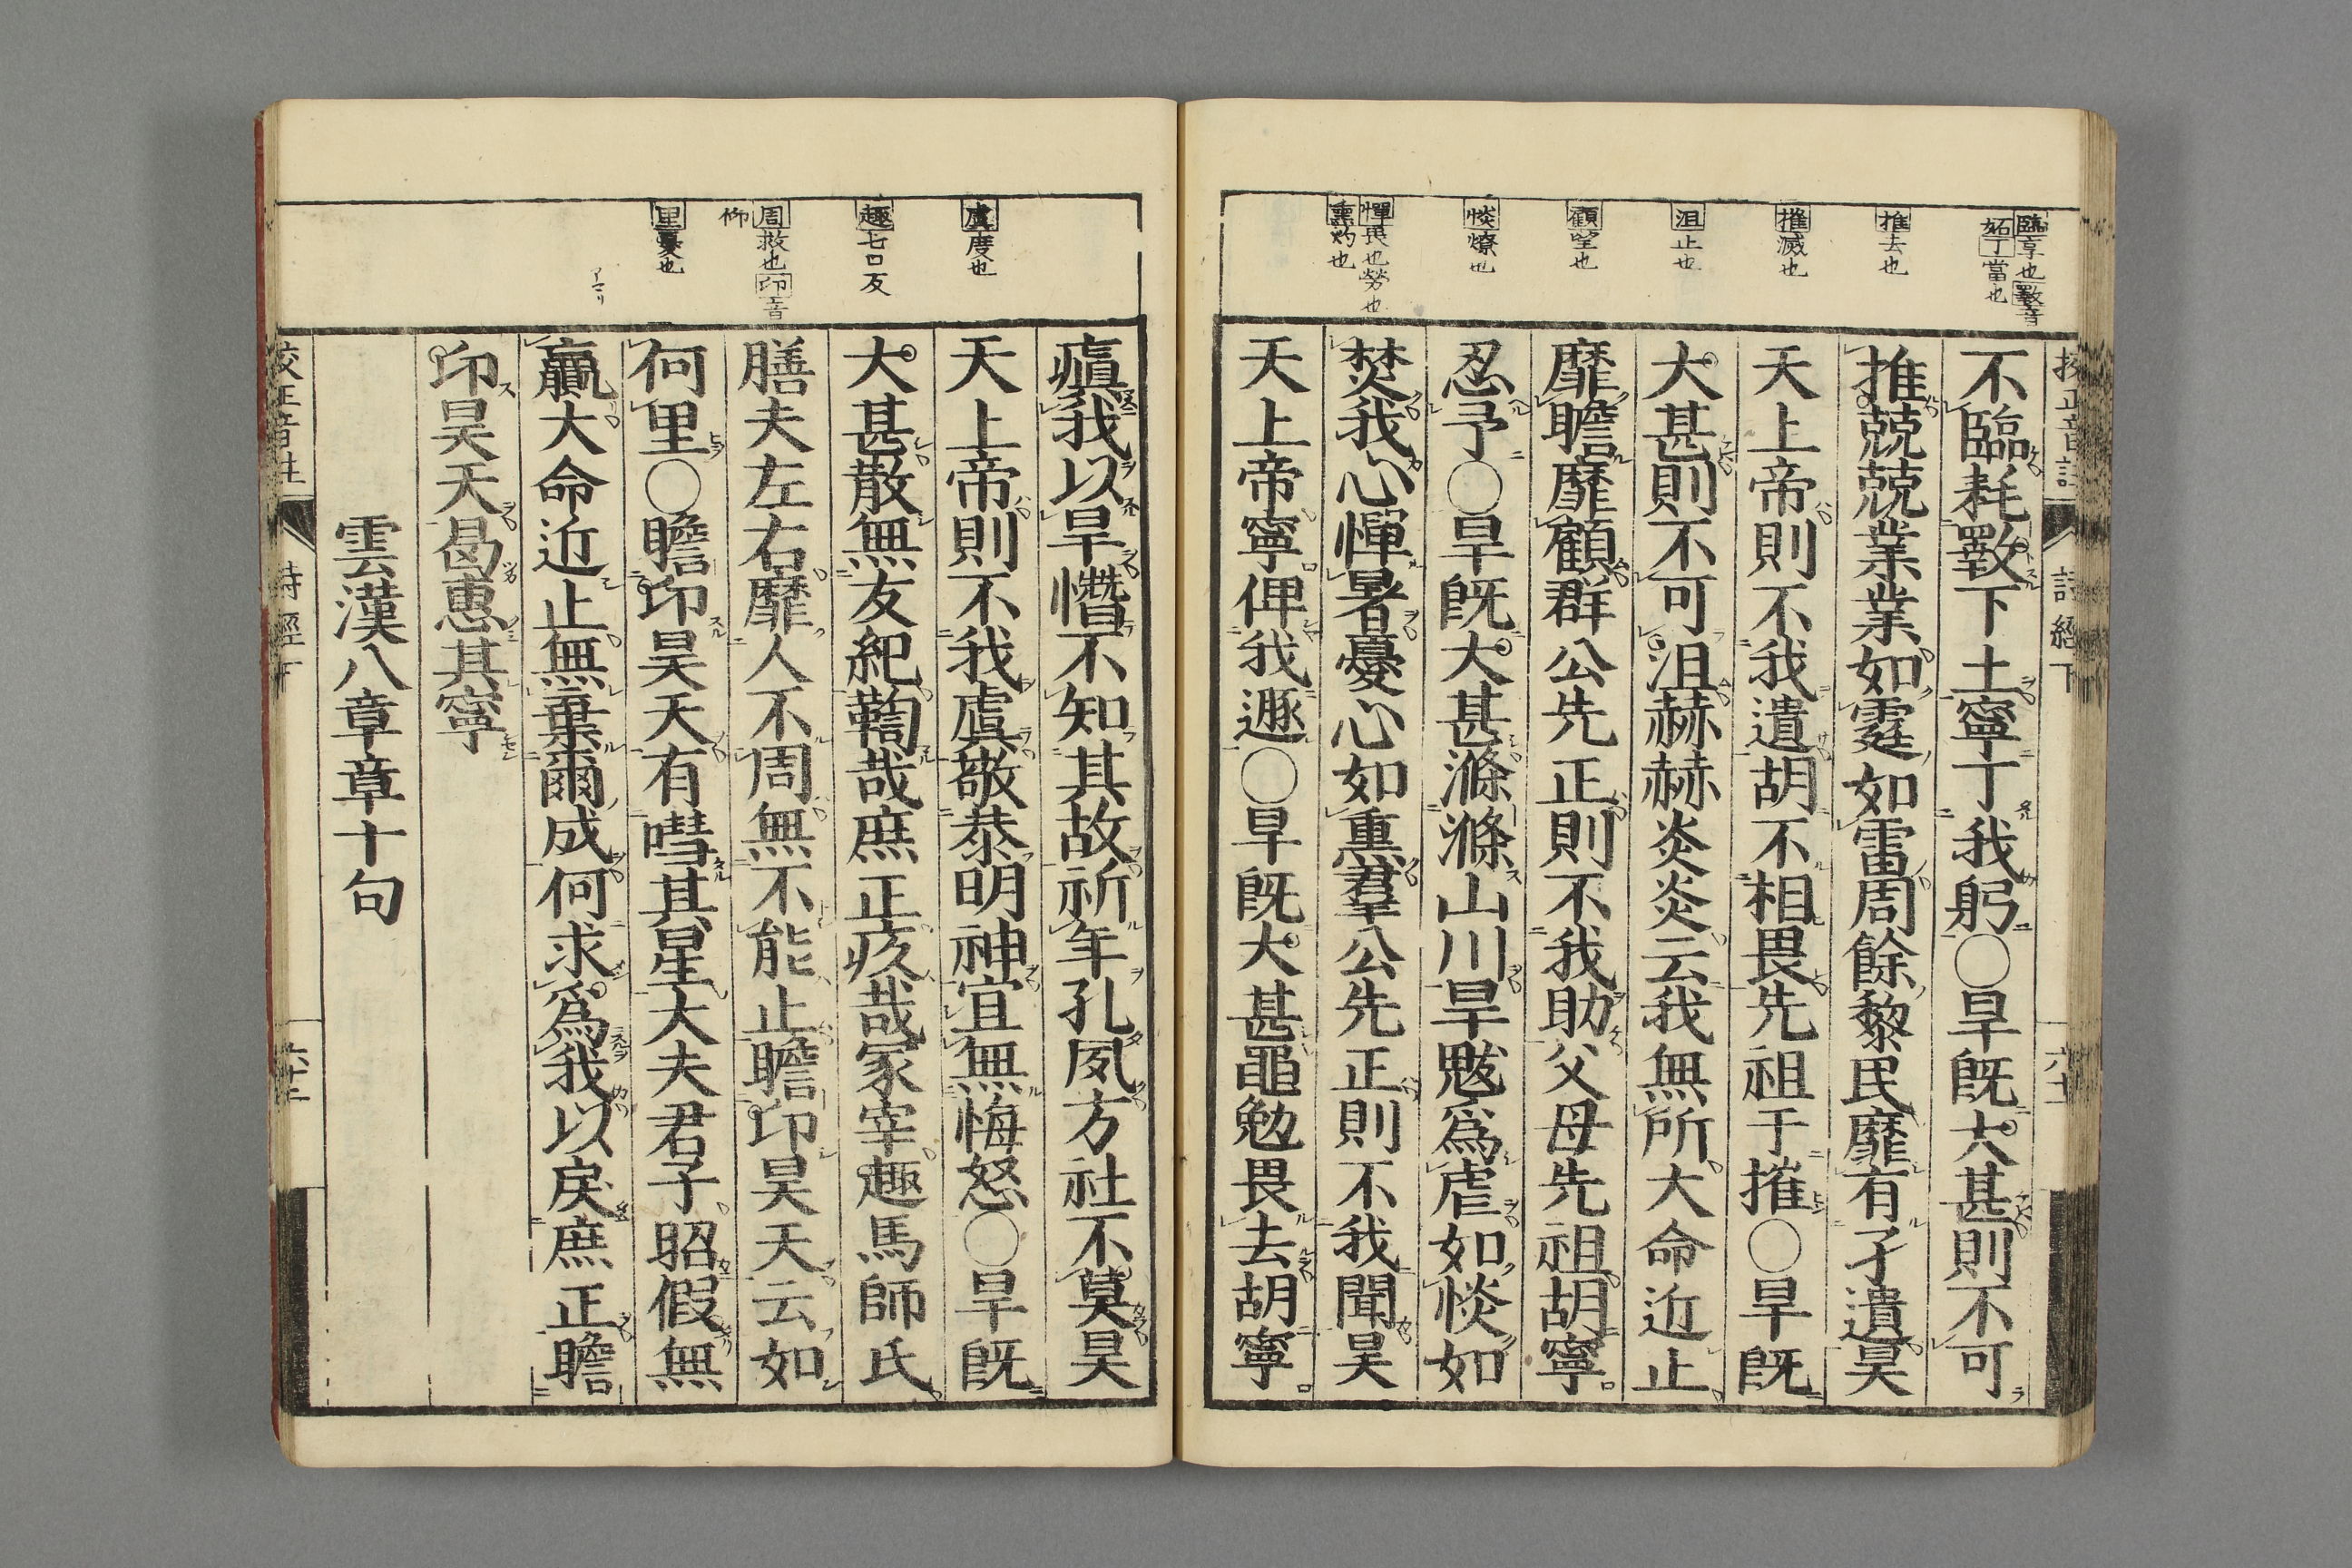 臨享也斁音
妬丁當也
推去也
摧滅也
沮止也
顧望也
惔燎也
憚畏也勞也
熏灼也
不臨耗斁下土寧丁我躬○旱既大甚則不可
推兢兢業業如霆如雷周餘黎民靡有孑遺昊
天上帝則不我遺胡不相畏先祖于摧○旱既
大甚則不可沮赫赫炎炎云我無所大命近止
靡瞻靡顧群公先正則不我助父母先祖胡寧
忍予○旱既大甚滌滌山川旱魃爲虐如惔如
焚我心憚暑憂心如熏羣公先正則不我聞昊
天上帝寧俾我遯○旱既大甚黽勉畏去胡寧
虞度也
趣七口反
周救也卬音
仰
里憂也
瘨我以旱憯不知其故祈年孔夙方社不莫昊
天上帝則不我虞敬恭明神宜無悔怒○旱既
大甚散無友紀鞫哉庶正疚哉冢宰趣馬師氏
膳夫左右靡人不周無不能止瞻卬昊天云如
何里○瞻卬昊天有嘒其星大夫君子昭假無
贏大命近止無棄爾成何求爲我以戾庶正瞻
卬昊天曷惠其寧
雲漢八章章十句